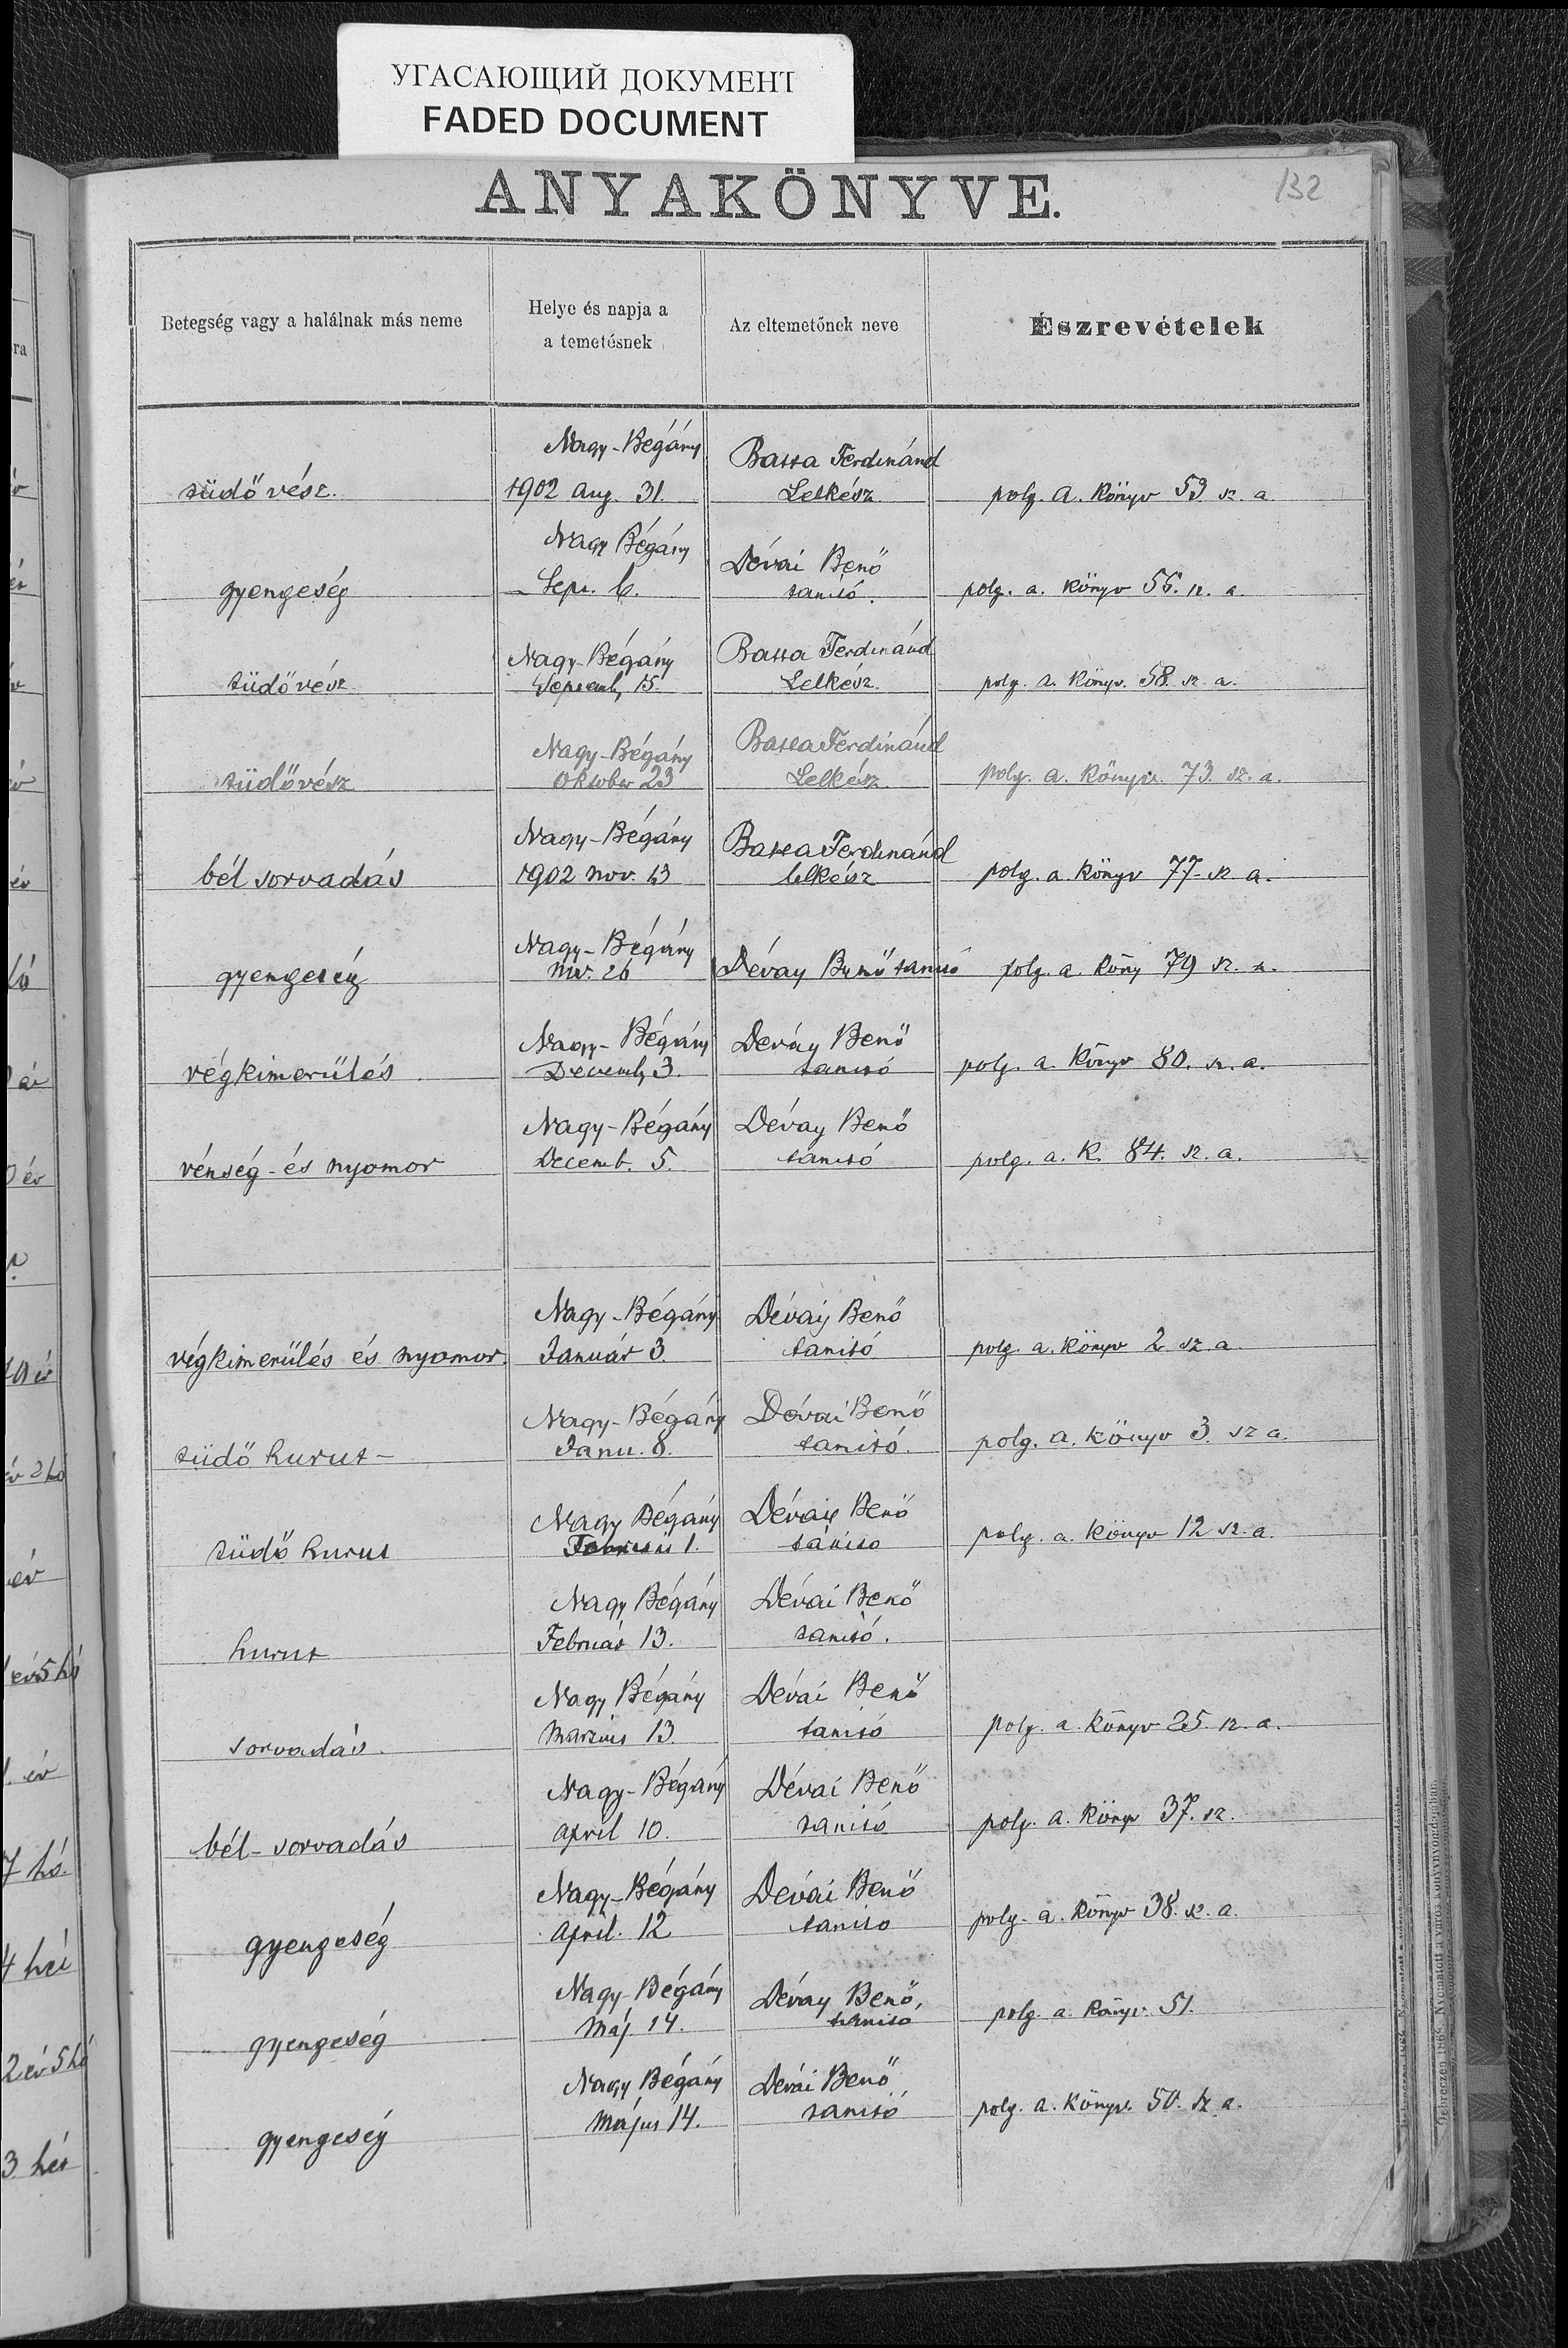 УГАСАЮЩИЙ ДОКУМЕНТ
FADED DOCUMENT
ANYAKÖNYVE.
132
Betegség vagy a halálnak más neme
Helye és napja a
a temetésnek
Az eltemetőnek neve
Észrevételek
Nagy-Bégány Bassa Ferdinánd
tüdővész. 1902 Aug. 31. Lelkész polg. a. könyv 53 sz. a
Nagy Bégány Dévai Benő
gyengeség Sept. 6. tanitó. polg. a. könyv 56. sz. a.
Nagy-Bégány Bassa Ferdinánd
tüdővész Septemb, 15. Lelkész. polg. a. könyv. 58. sz. a.
Nagy-Bégány Bassa Ferdinánd
tüdővész Oktober 23 Lelkész. polg. a. könyv. 73. sz. a.
Nagy-Bégány Bassa Ferdinánd
bél sorvadás 1902 nov. 13 lelkész polg. a. könyv 77. sz. a.
Nagy-Bégány
gyengeség nov. 26 Dévay Benő tanitó polg. a. köny 79 sz. a.
Nagy-Bégány Deváy Benő
végkimerülés Decemb, 3. tanitó polg. a. könyv 80. sz. a.
Nagy-Bégány Dévay Benő
vénség-és nyomor Decemb. 5. tanitó polg. a. k. 84. sz. a.
Nagy-Bégány Dévay Benő
végkimerülés és nyomor. Január 3. tanitó polg. a. könyv 2 sz. a.
Nagy-Bégány Dévai Benő
tüdő hurut- Janu. 8. tanitó. polg. a. könyv 3. sz a.
Nagy Bégány Dévay Benő
tüdő hurut 1. tánito polg. a. könyv 12 sz. a.
Nagy Bégány Dévai Benő
hurut Február 13. tanitó.
Nagy Bégány Dévai Benő
sorvadás. Marzius 13. tanitó polg. a. könyv 25. sz. a.
Nagy-Bégány Dévai Benő
bél-sorvadás April 10. tanitó polg. a. könyv 37. sz.
Nagy-Bégány Dévai Benő
gyengeség April. 12 tanito polg. a. könyv 38. sz. a.
Nagy-Bégány Dévay Benő,
gyengeség Máj. 14. tanitó polg. a. könyv. 51.
Nagy Bégány Dévai Benő
gyengeség Május 14. tanitó polg. a. könyv. 50. sz. a.
ra
év
ó
10 év
év 2 hó
év
1 év 5 hó
1. év
7 hó.
4 hét
2 év 5 hó
3 hét